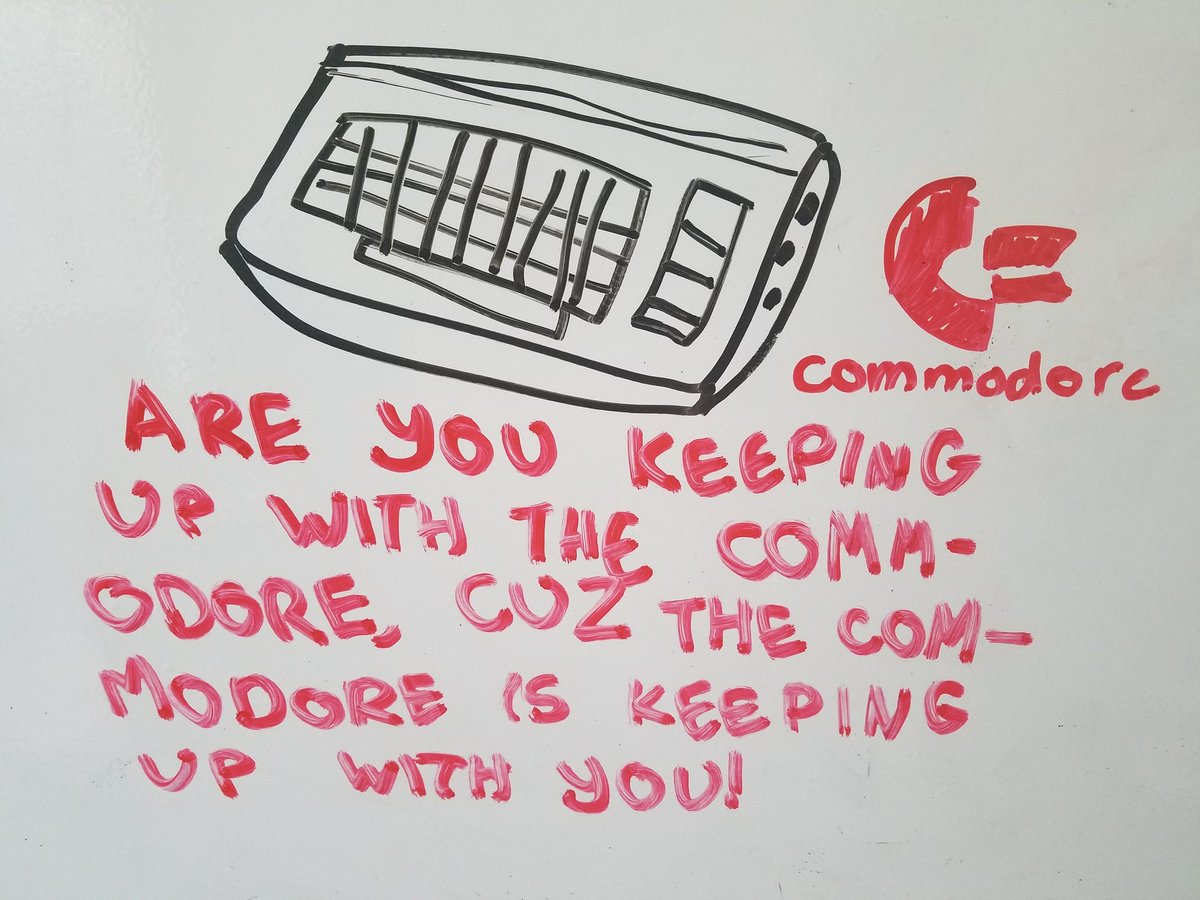 commodore
ARE YOU KEEPING
UP WITH THE COMM-
ODORE, CUZ THE COM-
MODORE IS KEEPING
UP WITH YOU!